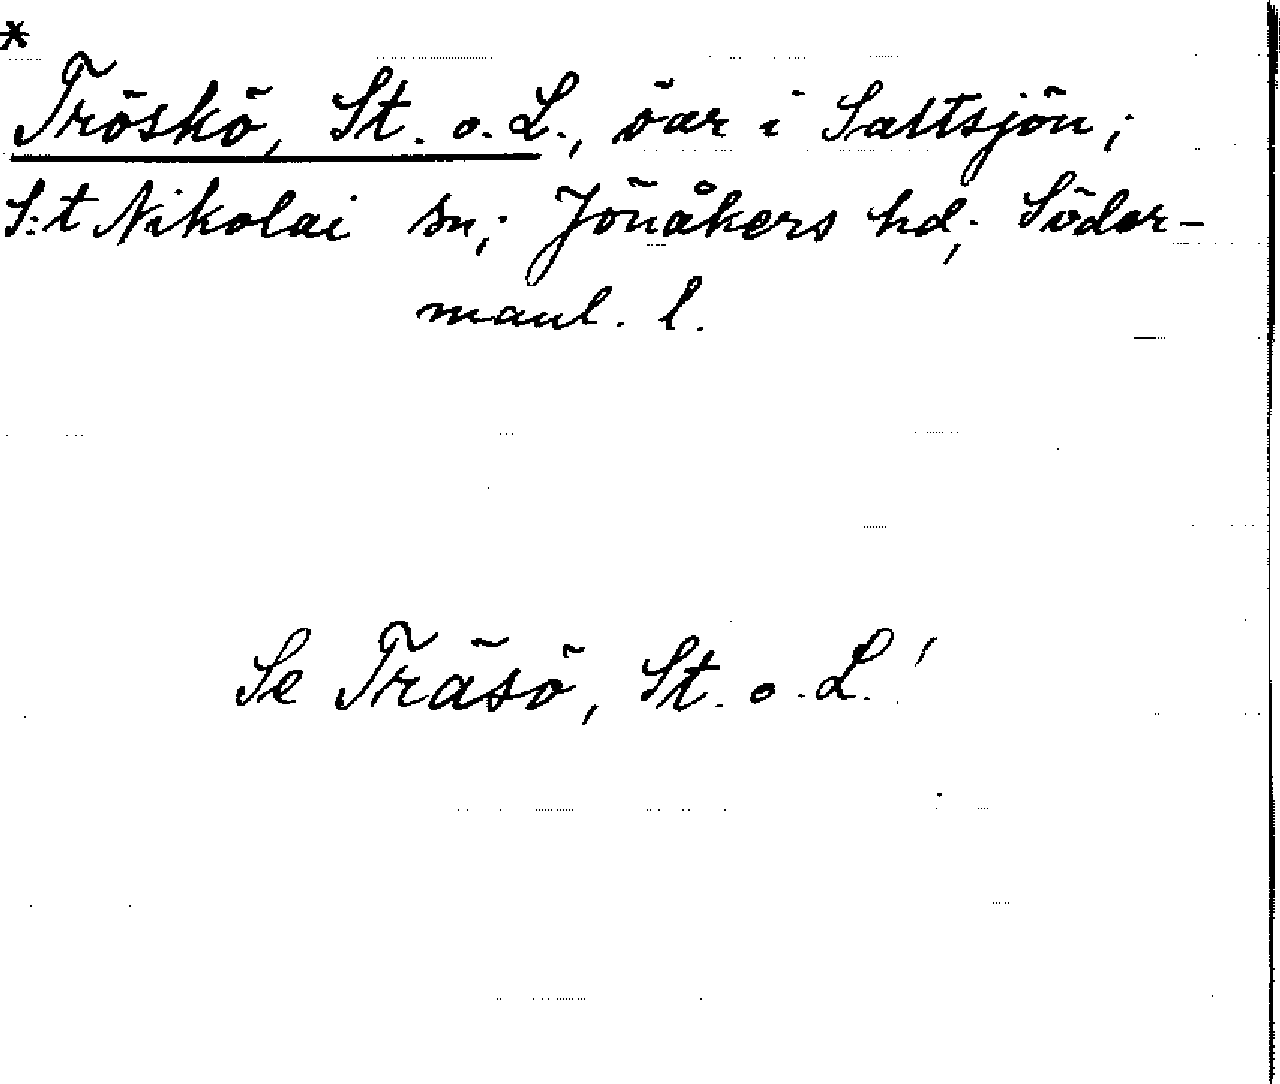 *
Tröskö, St. o. L., öar i Saltsjön;
S:t Nikolai sn; Jönåkers hd; Söder-
manl. l.
Se Träsö, St. o. L!